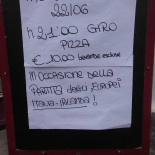 22/06
h 21:00 GIRO
PIZZA
€ 10.00 bevande escluse
IN OCCASIONE DELLA
PARTITA DEGLI EUROPEI
ITALIA-IRLANDA!